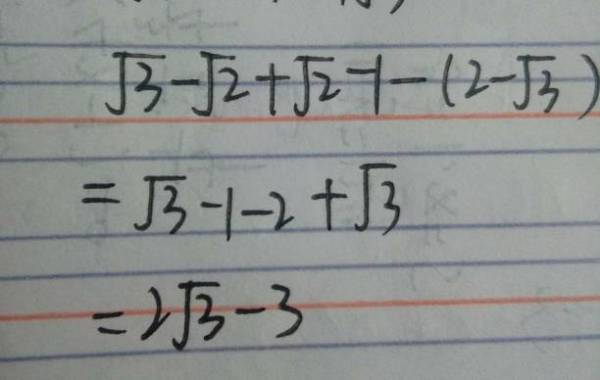 √3-√2+√2-1-(2-√3)
=√3-1-2+√3
=2√3-3